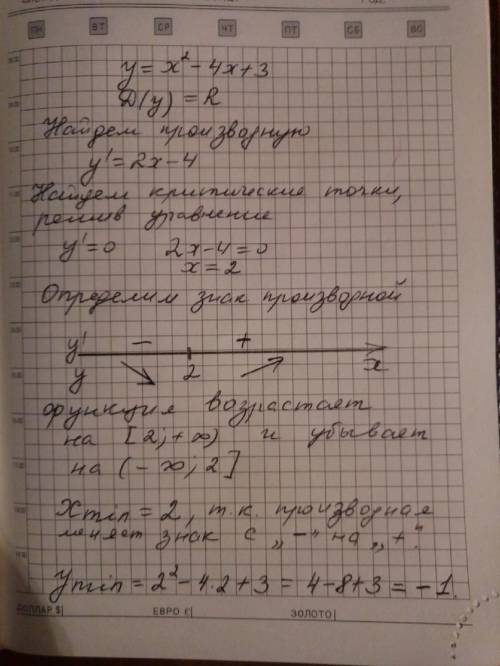 ПН ВТ СР ЧТ ПТ СБ ВС
y = x² - 4x + 3
D(y) = R
Найдем производную
y' = 2x - 4
Найдем критические точки,
решив уравнение
y' = 0 2x - 4 = 0
x = 2
Определим знак производной
y' - +
y 2 x
функция возрастает
на [2; +∞) и убывает
на (-∞; 2]
Xmin = 2, т.к. производная
меняет знак с „-" на „+".
Ymin = 2² - 4·2 + 3 = 4 - 8 + 3 = -1.
ДОЛЛАР $| ЕВРО €| ЗОЛОТО|